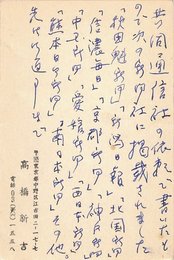 共同通信社の依頼で書いたもの
で次の新聞社に掲載されました
「秋田魁新聞」「新潟日報」「北国新聞」
「信濃毎日」「京都新聞」「神戸新聞」
「中国新聞」「愛媛新聞」「西日本新聞」
「熊本日日新聞」「南日本新聞」その他。
先は
東京都中野区江古田二ノ一七ノ七
高橋新吉